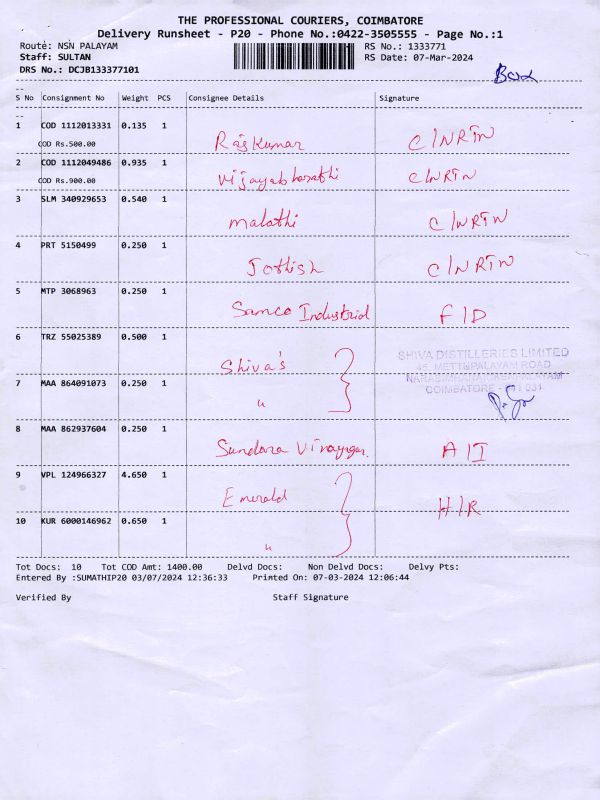 THE PROFESSIONAL COURIERS, COIMBATORE
Delivery Runsheet - P20 - Phone No.:0422-3505555 - Page No.:1
Route: NSN PALAYAM RS No.: 1333771
Staff: SULTAN RS Date: 07-Mar-2024
DRS No.: DCJB133377101
--
S No Consignment No Weight PCS Consignee Details Signature
--
1 COD 1112013331 0.135 1 Rajkumar C/NRTN
COD Rs.500.00
2 COD 1112049486 0.935 1 Vijayabharathi C/NRTN
COD Rs.900.00
3 SLM 340929653 0.540 1 Malathi C/NRTN
4 PRT 5150499 0.250 1 Jothish C/NRTN
5 MTP 3068963 0.250 1 Samco Industrial F/D
6 TRZ 55025389 0.500 1 Shiva's
SHIVA DISTILLERIES LIMITED
METTUPALAYAM ROAD
7 MAA 864091073 0.250 1 "
COIMBATORE
8 MAA 862937604 0.250 1 Sundara Vinayagar A/I
9 VPL 124966327 4.650 1 Emerald H/R
10 KUR 6000146962 0.650 1 "
Tot Docs: 10 Tot COD Amt: 1400.00 Delvd Docs: Non Delvd Docs: Delvy Pts:
Entered By :SUMATHIP20 03/07/2024 12:36:33 Printed On: 07-03-2024 12:06:44
Verified By Staff Signature